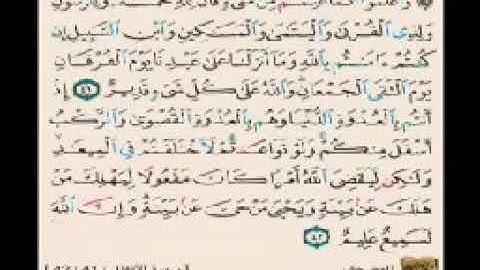 وَٱعۡلَمُوٓاْ أَنَّمَا غَنِمۡتُم مِّن شَيۡءٖ فَأَنَّ لِلَّهِ خُمُسَهُۥ وَلِلرَّسُولِ
وَلِذِي ٱلۡقُرۡبَىٰ وَٱلۡيَتَٰمَىٰ وَٱلۡمَسَٰكِينِ وَٱبۡنِ ٱلسَّبِيلِ إِن
كُنتُمۡ ءَامَنتُم بِٱللَّهِ وَمَآ أَنزَلۡنَا عَلَىٰ عَبۡدِنَا يَوۡمَ ٱلۡفُرۡقَانِ
يَوۡمَ ٱلۡتَقَى ٱلۡجَمۡعَانِۗ وَٱللَّهُ عَلَىٰ كُلِّ شَيۡءٖ قَدِيرٌ ٤١ إِذۡ
أَنتُم بِٱلۡعُدۡوَةِ ٱلدُّنۡيَا وَهُم بِٱلۡعُدۡوَةِ ٱلۡقُصۡوَىٰ وَٱلرَّكۡبُ
أَسۡفَلَ مِنكُمۡۚ وَلَوۡ تَوَاعَدتُّمۡ لَٱخۡتَلَفۡتُمۡ فِي ٱلۡمِيعَٰدِ
وَلَٰكِن لِّيَقۡضِيَ ٱللَّهُ أَمۡرٗا كَانَ مَفۡعُولٗا لِّيَهۡلِكَ مَنۡ
هَلَكَ عَنۢ بَيِّنَةٖ وَيَحۡيَىٰ مَنۡ حَيَّ عَنۢ بَيِّنَةٖۗ وَإِنَّ ٱللَّهَ
لَسَمِيعٌ عَلِيمٌ ٤٢